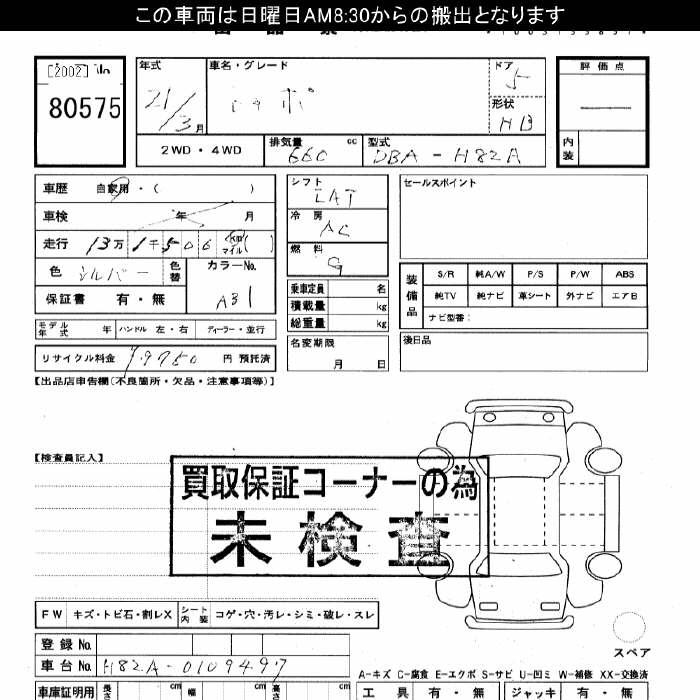 この車両は日曜日AM8:30からの搬出となります
[2002] No
80575
年式
21/3月
車名・グレード
トッポ
ドア
5
形状
HB
評価点
内装
2WD・4WD
排気量
660 cc
型式
DBA-H82A
車歴 自家用・( )
車検 年 月
走行 13万1千506 km マイル( )
色 シルバー 色替
カラーNo.
A31
保証書 有・無
シフト
冷房
AC
燃料
G
乗車定員 名
積載量 kg
総重量 kg
名変期限
月 日
セールスポイント
装備品
S/R 純A/W P/S P/W ABS
純TV 純ナビ 革シート 外ナビ エアB
ナビ型番:
後日品
モデル年式 年 ハンドル 左・右 ディーラー・並行
リサイクル料金 円 預託済
【出品店申告欄(不良箇所・欠品・注意事項等)】
【検査員記入】
買取保証コーナーの為
未検査
FW キズ・トビ石・割レX シート内装 コゲ・穴・汚レ・シミ・破レ・スレ
登録No.
車台No. H82A-0109497
スペア
A-キズ C-腐食 E-エクボ S-サビ U-凹ミ W-補修 XX-交換済
車庫証明用 長さ cm 幅 cm 高さ cm
工具 有・無 ジャッキ 有・無